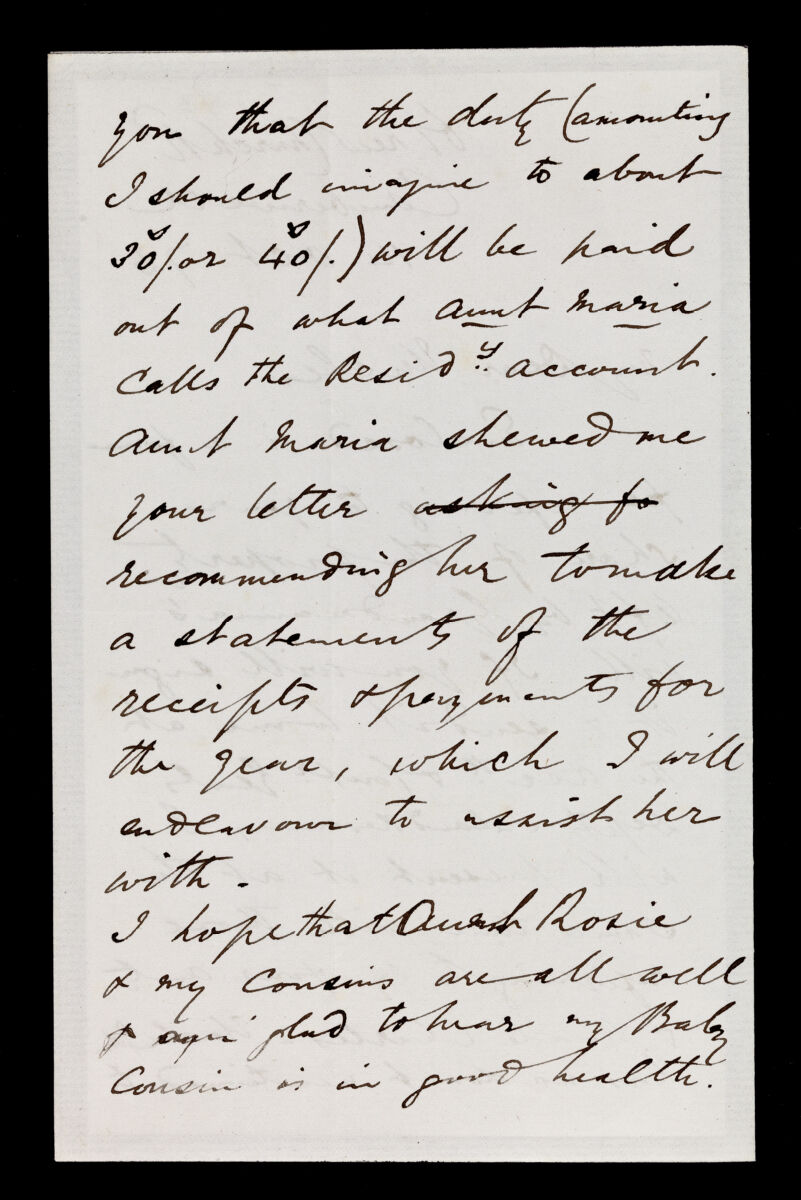 you that the duty (amounting
I should imagine to about
30s/. or 40s/.) will be paid
out of what Aunt Maria
calls the Resid.y account.
Aunt Maria shewed me
your letter asking fo
recommending her to make
a statements of the
receipts & payments for
the year, which I will
endeavour to assist her
with.
I hope that Aunt Rosie
& my Cousins are all well
& am glad to hear my Baby
Cousin is in good health.